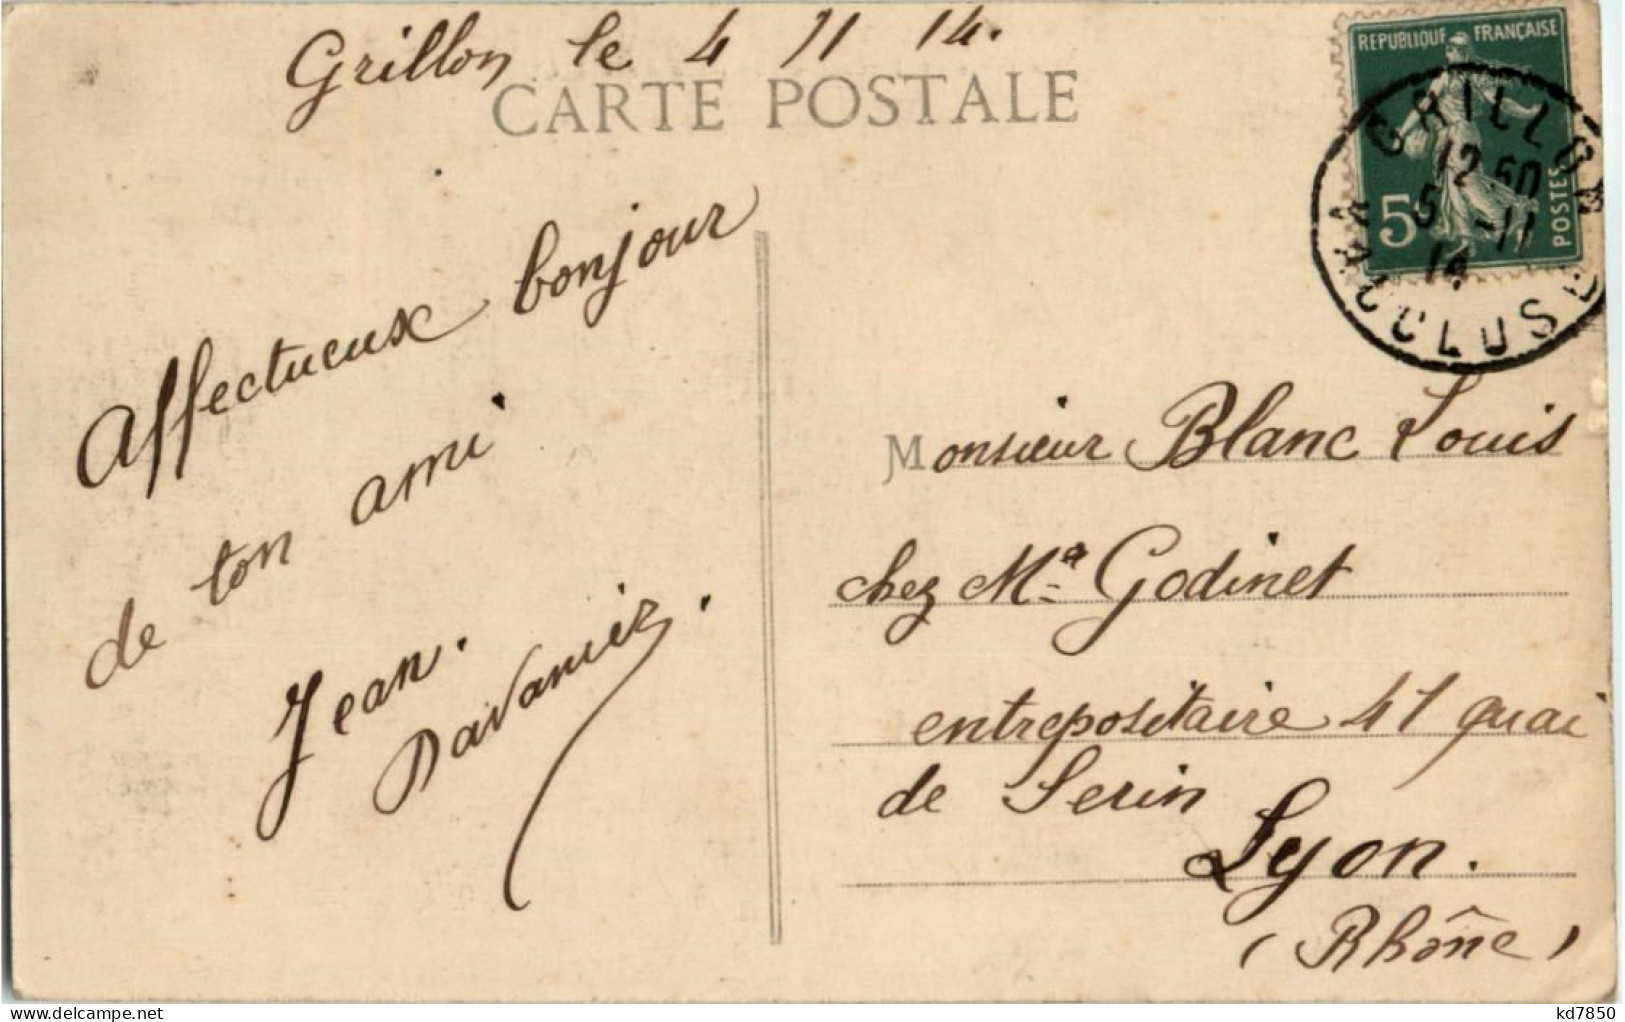 Grillon le 4 11 14.
CARTE POSTALE
REPUBLIQUE FRANÇAISE
5
POSTES
GRILLON
12 50
5 -11
14
VAUCLUSE
Affectueux bonjour
de ton ami
Jean.
Monsieur Blanc Louis
chez Mr Godinet
entrepositaire 41 quai
de Serin
Lyon.
(Rhône)
delcampe.net
kd7850